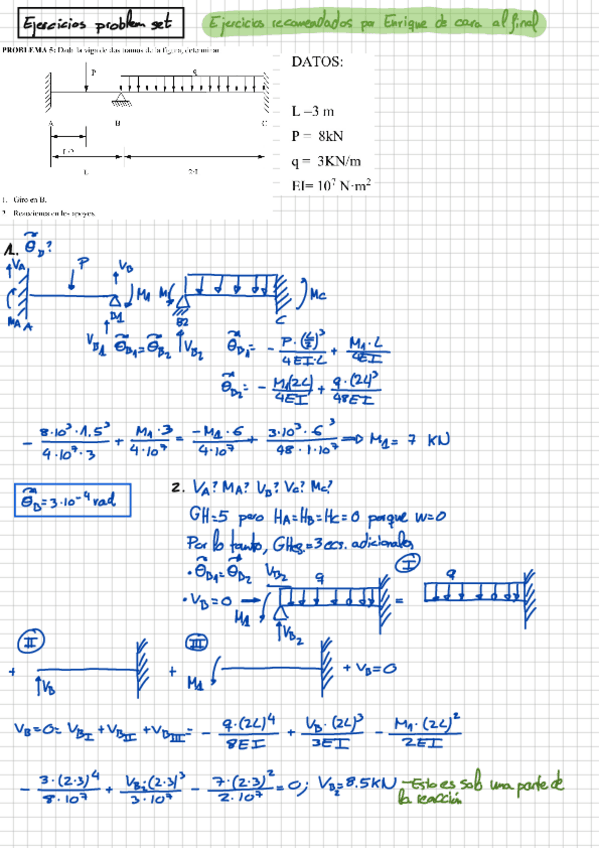 Ejercicios problem set
Ejercicios recomendados por Enrique de cara al final
PROBLEMA 5: Dada la viga de dos tramos de la figura, determinar
P q
DATOS:
L =3 m
P = 8kN
q = 3KN/m
EI= 10⁷ N·m²
A B C
L
1. Giro en B.
2. Reacciones en los apoyos.
1. θ_B?
V_A P V_B M_1 M_1 M_C
M_A A B1 B2 C
V_B1 θ_B1 = θ_B2 V_B2
θ_B1 = - P·(L/2)³/4EI·L + M_1·L/4EI
θ_B2 = - M_1(2L)/4EI + q·(2L)³/48EI
- 8·10³·1,5³/4·10⁷·3 + M_1·3/4·10⁷ = -M_1·6/4·10⁷ + 3·10³·6³/48·1·10⁷ => M_1 = 7 KN
θ_B = 3·10⁻⁴ rad
2. V_A? M_A? V_B? V_C? M_C?
GH=5 pero H_A=H_B=H_C=0 porque w=0
Por lo tanto, GH_eq.=3 ecs. adicionales
· θ_B1 = θ_B2
· V_B = 0
V_B2 q M_1 V_B2 =
I q
II + V_B
III + M_1 + V_B=0
V_B=0= V_BI + V_BII + V_BIII = - q·(2L)⁴/8EI + V_B·(2L)³/3EI - M_1·(2L)²/2EI
- 3·(2·3)⁴/8·10⁷ + V_B2·(2·3)³/3·10⁷ - 7·(2·3)²/2·10⁷ = 0; V_B2 = 8.5KN → Esto es solo una parte de
la reacción